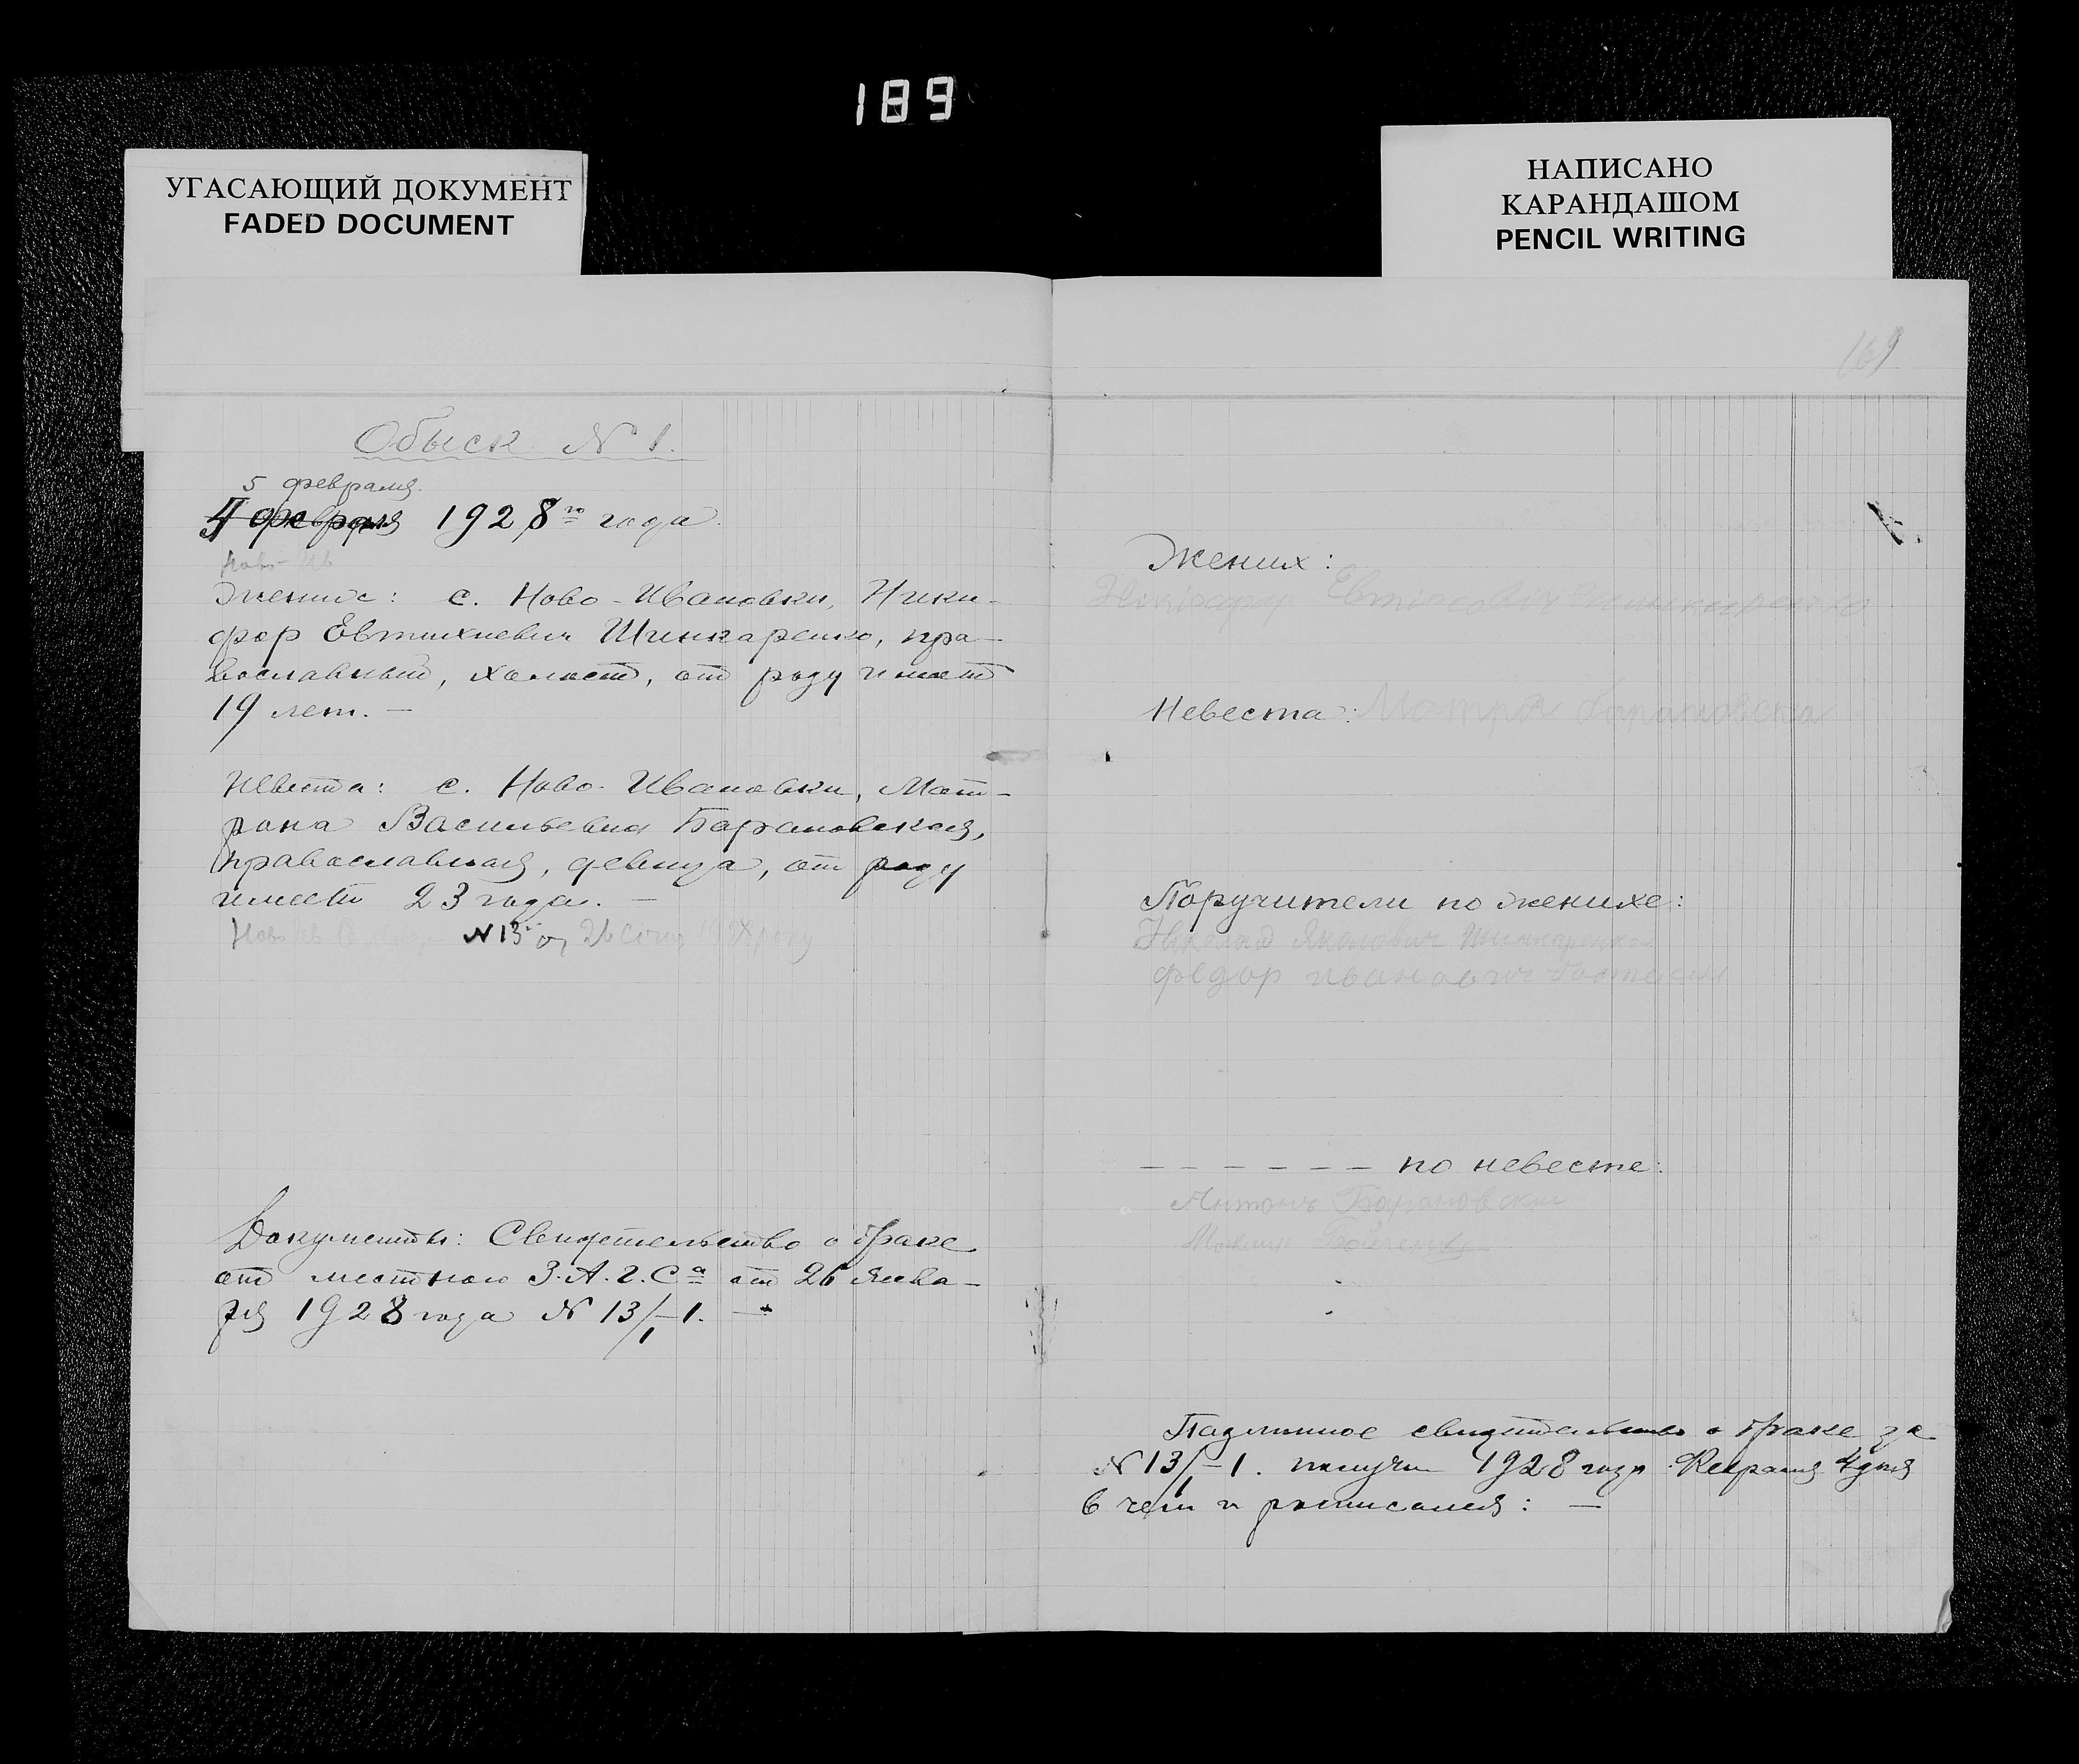 189
УГАСАЮЩИЙ ДОКУМЕНТ
FADED DOCUMENT
НАПИСАНО
КАРАНДАШОМ
PENCIL WRITING
169
Обыск N 1.
5 февраля.
4 февраля 1928го года.
Ново-Ив
Жених: с. Ново-Ивановки, Ники-
фор Евтихиевич Шинкаренко, пра-
вославный, холост, от роду имеет
19 лет. —
Невеста: с. Ново-Ивановки, Мат-
рона Васильевна Барановская,
православная, девица, от роду
имеет 23 года. —
Ново Ив N 13 от 26 1928 року
Документы: Свидетельство о браке
от местного З.А.Г.Са от 26 янва-
ря 1928 года N 13/1-1. —
Жених:
Евтихович Шинкаренко
Невеста: Мотря Барановска
Поручители по женихе:
Николай Яковович Шинкаренко
федор иванович
— — — — — — по невесте:
Антонъ Барановски
Подлинное свидетельство о браке за
N 13/1-1. получил 1928 года Февраля 4 дня
в чем и росписался: —